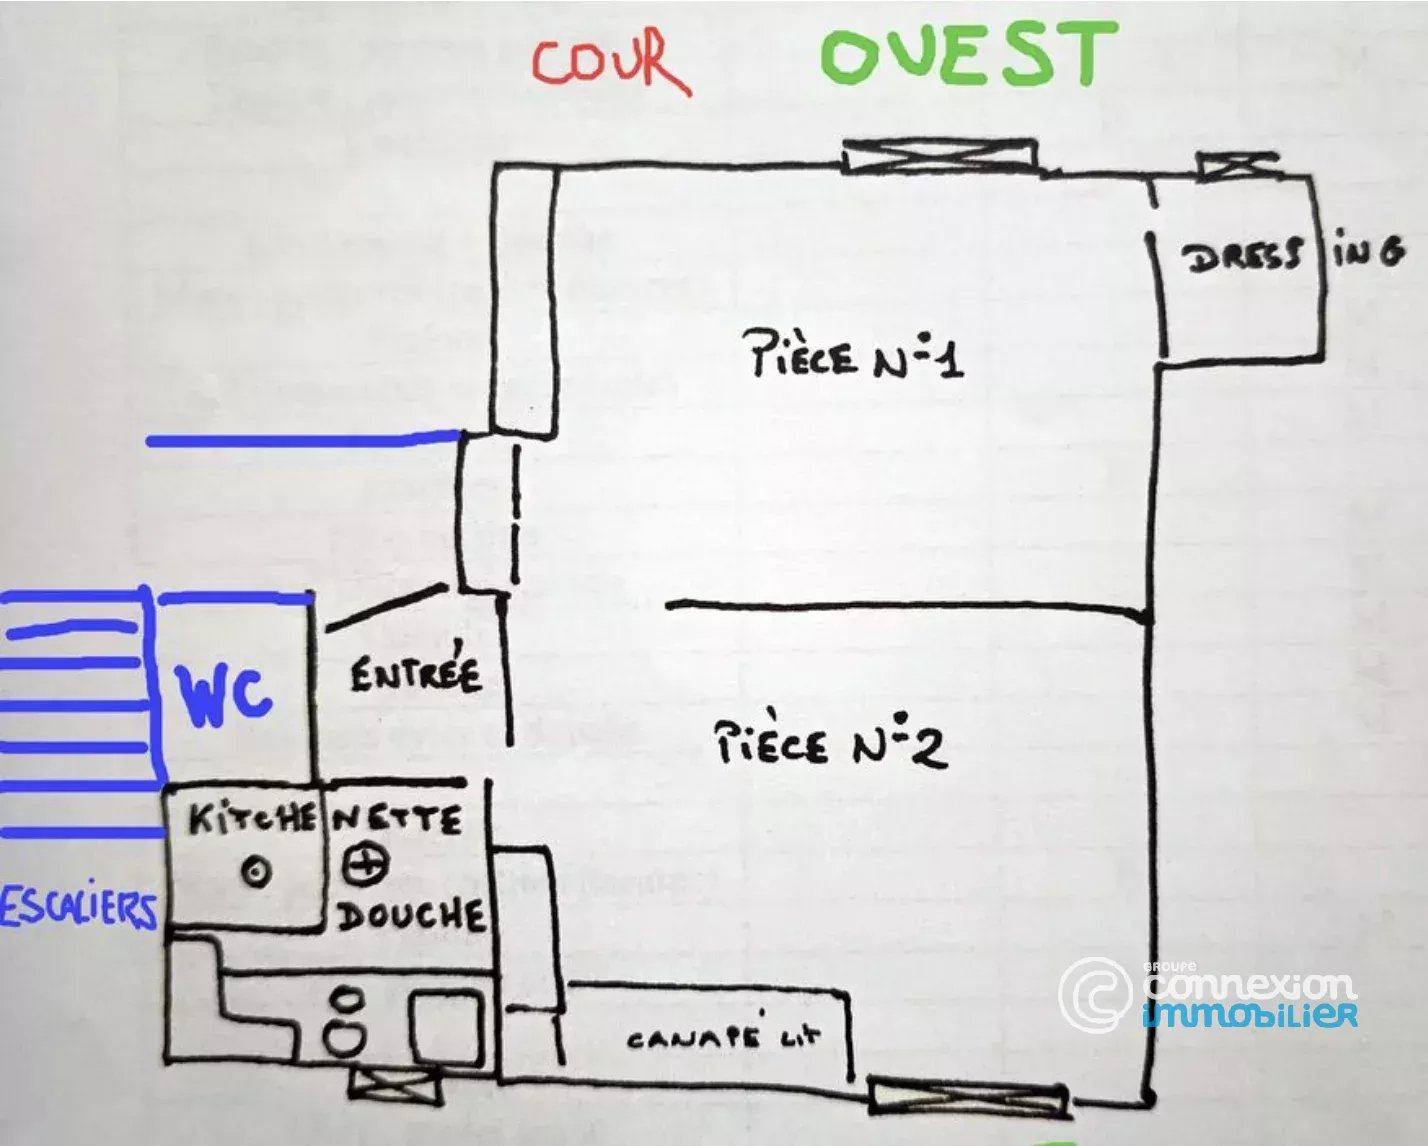 COUR OUEST
DRESSING
PIÈCE N°1
WC
ENTRÉE
PIÈCE N°2
KITCHENETTE
DOUCHE
ESCALIERS
CANAPÉ LIT
GROUPE
connexion
immobilier